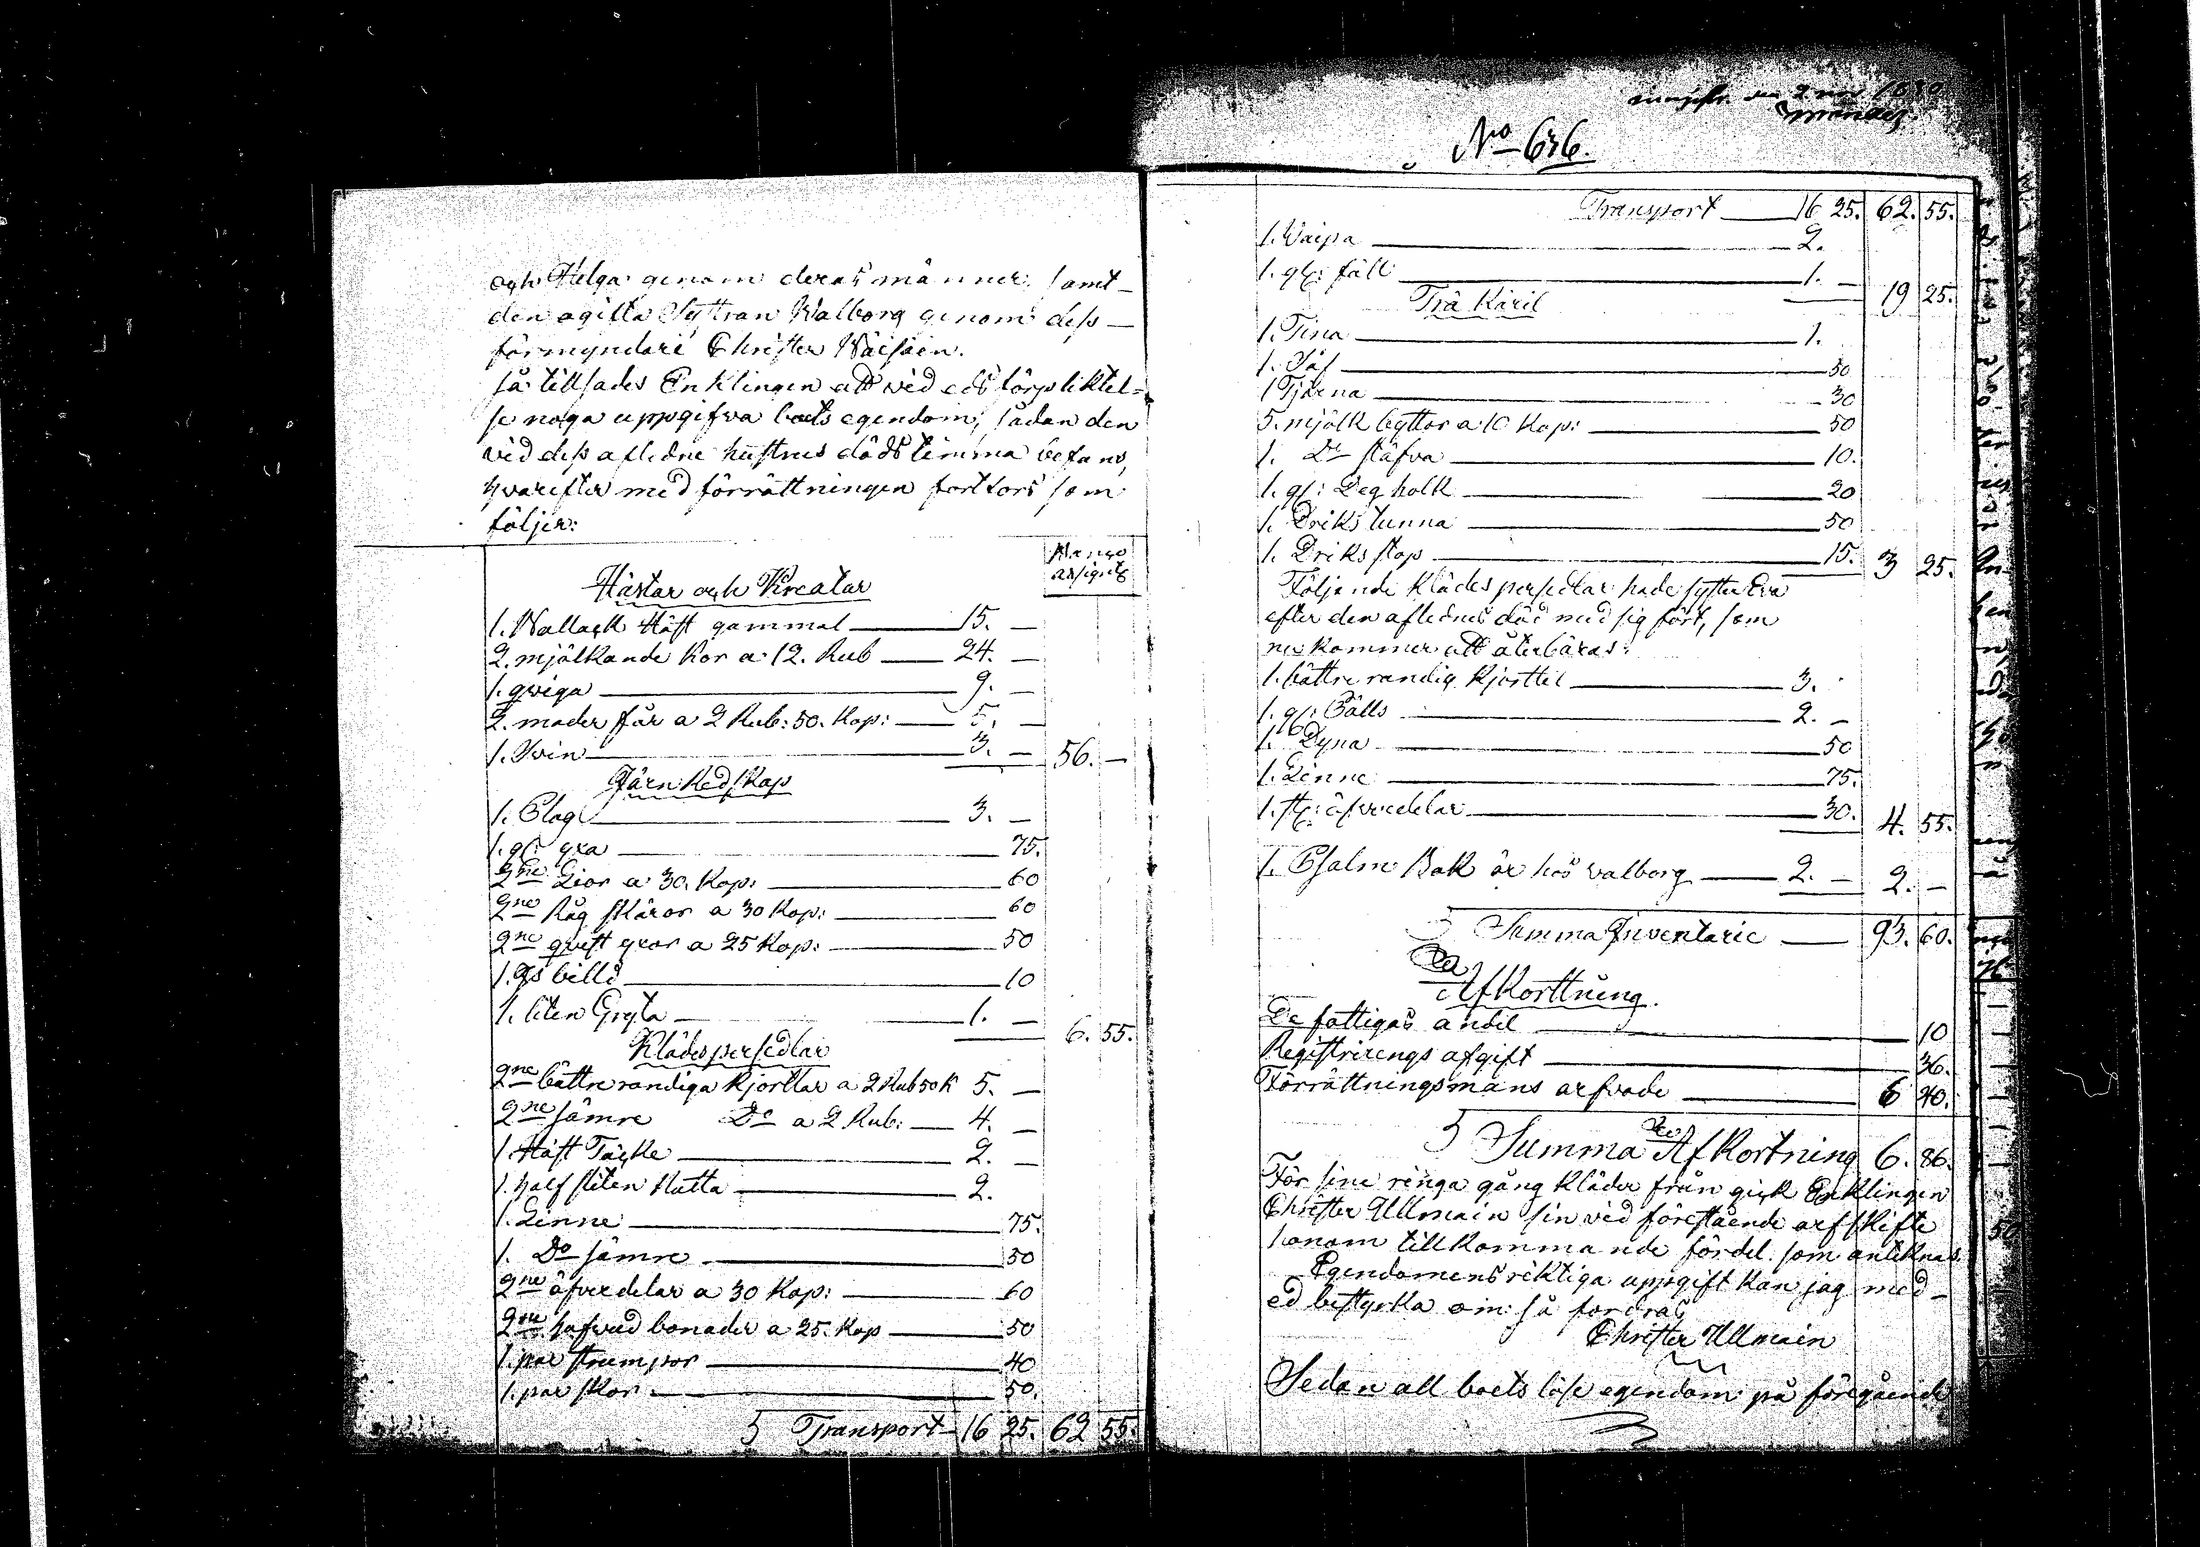 och Helga genom deras männer, samt
den ogifta Systran Walborg genom dess
förmyndare Christer Wäisäin.
så tillsades Enklingen att vid eds förpliktel=
se noga uppgifva boets egendom, sådan den
vid dess aflidne hustrus dödstimma befans,
hvarefter med förrättningen fortfors som
följer:
Banco
assignts
Hästar och Kreatur
1. Wallack Häst gammal 15. —
2. mjölkande Kor a 12. Rub 24. —
1. qviga 9. —
2. moder får a 2 Rub: 50. Kop: 5. —
1. Svin 3. — 56. —
Järn Redskap
1. Plog 3. —
1. gl: yxa 75.
2ne Lior a 30. Kop: 60
2ne Råg skäror a 30 Kop: 60
2ne qvist yxor a 25 Kop: 50
1. gs bille 10
1. liten Gryta 1. — 6. 55.
Klädespersedlar
2ne bättre randiga kjortlar a 2 Rub 50 K 5. —
2ne sämre Do a 2 Rub: 4. —
1 Häst Täcke 2. —
1. half sliten Matta 2.
1. Linne 75.
1. Do sämre 50
2ne öfverdelar a 30 Kop: 60
2ne hufvud bonader a 25. Kop 50
1. par strumpor 40
1. par skor 50.
Transport 16 25. 62 55.
No 636.
Transport 16 25. 62. 55.
1. Vaipa 2.
1. gl: fäll 1. — 19 25.
Trä Käril
1. Tina 1.
1. Såf 50
1 Tjärna 30
5. mjölk byttor a 10 Kop: 50
1. Do stäfva 10.
1. gl: Deg holk 20
1. Driks tunna 50
1. Driks stop 15. 3 25.
Följande Klädes persedlar hade syster Eva
efter den aflednes död med sig fört, som
nu kommer att återbäras:
1. bättre randig kjorttel 3.
1. gl: Pälls 2. —
1. Dyna 50
1. Linne 75.
1. st: öfverdelar 30. 4. 55.
1. Psalm Bok är hos Valborg 2. — 2. —
Summa Inventarie 93. 60.
Afkorttning.
De fattigas andel 10
Registrirings afgift 36.
Förrättningsmans arfvode 6 40.
Summa Afkortning 6. 86.
För sine ringa gång kläder från gick Enklingen
Christer Ullmain sin vid förestående arfskifte
honom tillkommande fördel som anteknas.
Egendomens riktiga uppgift kan jag med
ed bestyrka om så fordras
Christer Ullmain
Sedan all boets löse egendom på föregående